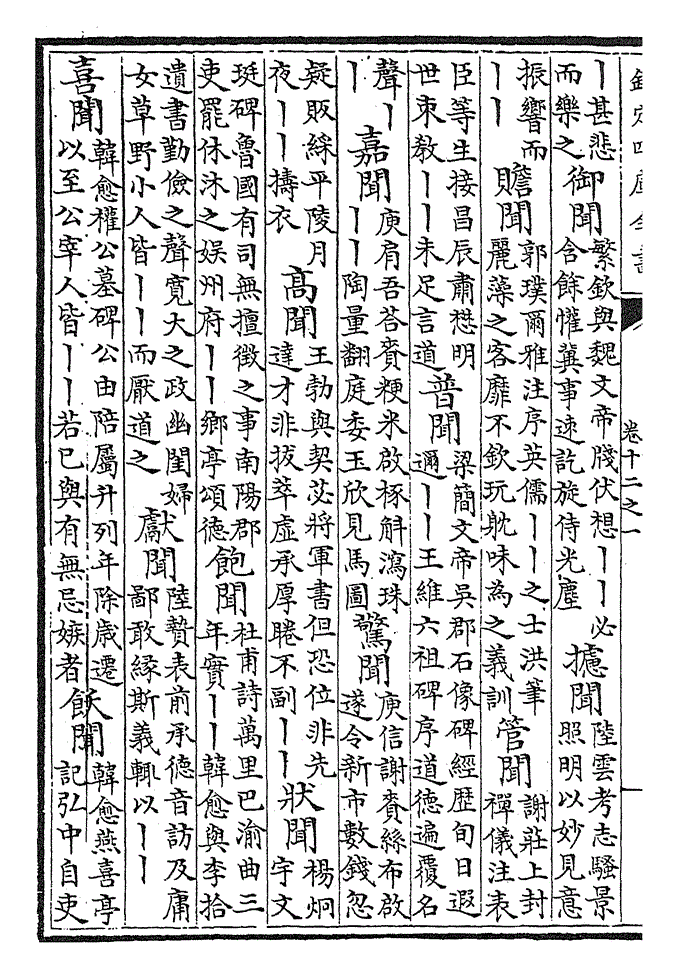 欽定四庫全書 卷十二之一
丨甚悲而樂之 御聞 繁欽與魏文帝牋伏想丨丨必含餘懽冀事速訖旋侍光塵 攄聞 陸雲考志騷景照明以妙見意
振響而丨丨 贍聞 郭璞爾雅注序英儒丨丨之士洪筆麗藻之客靡不欽玩躭味為之義訓 管聞 謝莊上封禪儀注表
臣等生接昌辰肅懋明世束教丨丨未足言道 普聞 梁簡文帝吳郡石像碑經歴旬日遐邇丨丨王維六祖碑序道德遍覆名
聲丨丨 嘉聞 庾肩吾答賚粳米啟㭬斛瀉珠丨丨陶量翻庭委玉欣見馬圖 驚聞 庾信謝賚絲布啟遂令新市數錢忽
疑販綵平陵月夜丨丨擣衣 高聞 王勃與契苾將軍書但恐位非先達才非拔萃虚承厚睠不副丨丨 狀聞 楊炯宇文
珽碑魯國有司無擅徴之事南陽郡吏罷休沐之娱州府丨丨鄉亭頌德 飽聞 杜甫詩萬里巴渝曲三年實丨丨韓愈與李拾
遺書勤儉之聲寛大之政幽閨婦女草野小人皆丨丨而厭道之 獻聞 陸贄表前承德音訪及庸鄙敢緣斯義輒以丨丨
喜聞 韓愈權公墓碑公由陪屬升列年除歳遷以至公宰人皆丨丨若已與有無忌嫉者 飫聞 韓愈燕喜亭記弘中自吏